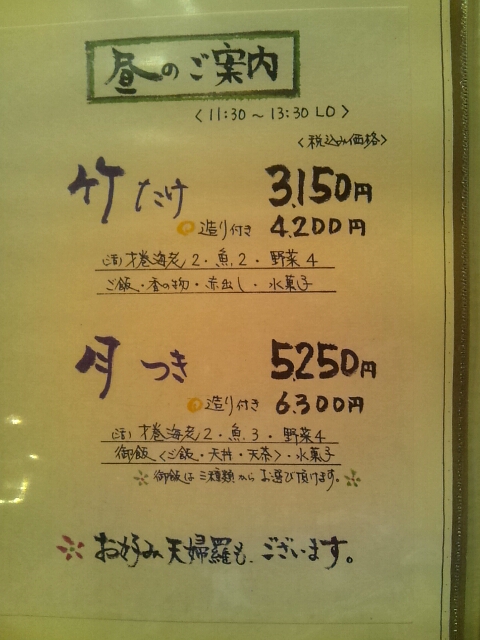 昼のご案内
〈11:30～13:30 LO〉
〈税込み価格〉
竹 たけ 3,150円
造り付き 4,200円
(活)才巻海老2・魚2・野菜4
ご飯・香の物・赤出し・水菓子
月 つき 5,250円
造り付き 6,300円
(活)才巻海老2・魚3・野菜4
御飯〈ご飯・天丼・天茶〉・水菓子
※御飯は三種類からお選び頂けます。※
※お好み天婦羅も、ございます。